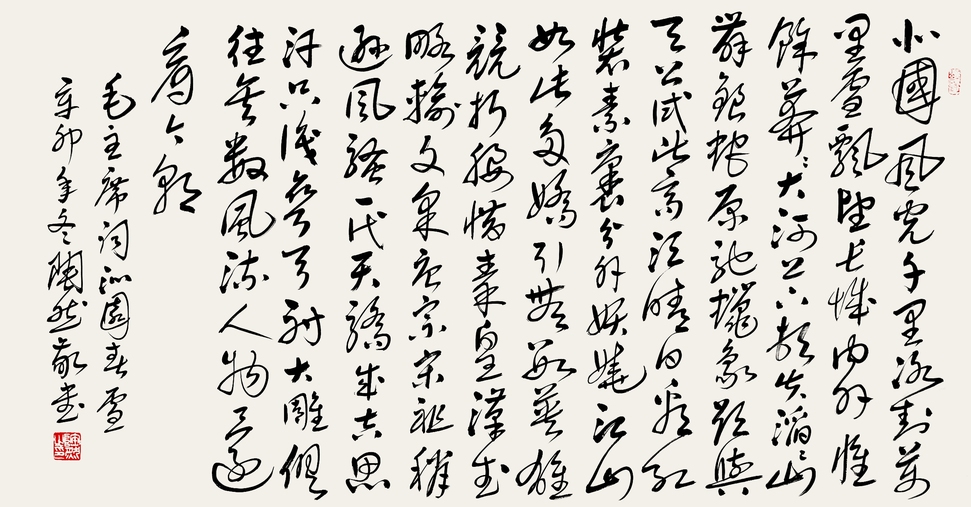 北國風光千里冰封萬
里雪飄望長城內外惟
餘莽々大河上下頓失滔々山
舞銀蛇原馳蠟象欲與
天公試比高須晴日看紅
裝素裹分外妖嬈江山
如此多嬌引無數英雄
競折腰惜秦皇漢武
略輸文采唐宗宋祖稍
遜風騷一代天驕成吉思
汗只識彎弓射大雕俱
往矣數風流人物還
看今朝
毛主席詞沁園春雪
辛卯年冬陶然敬書